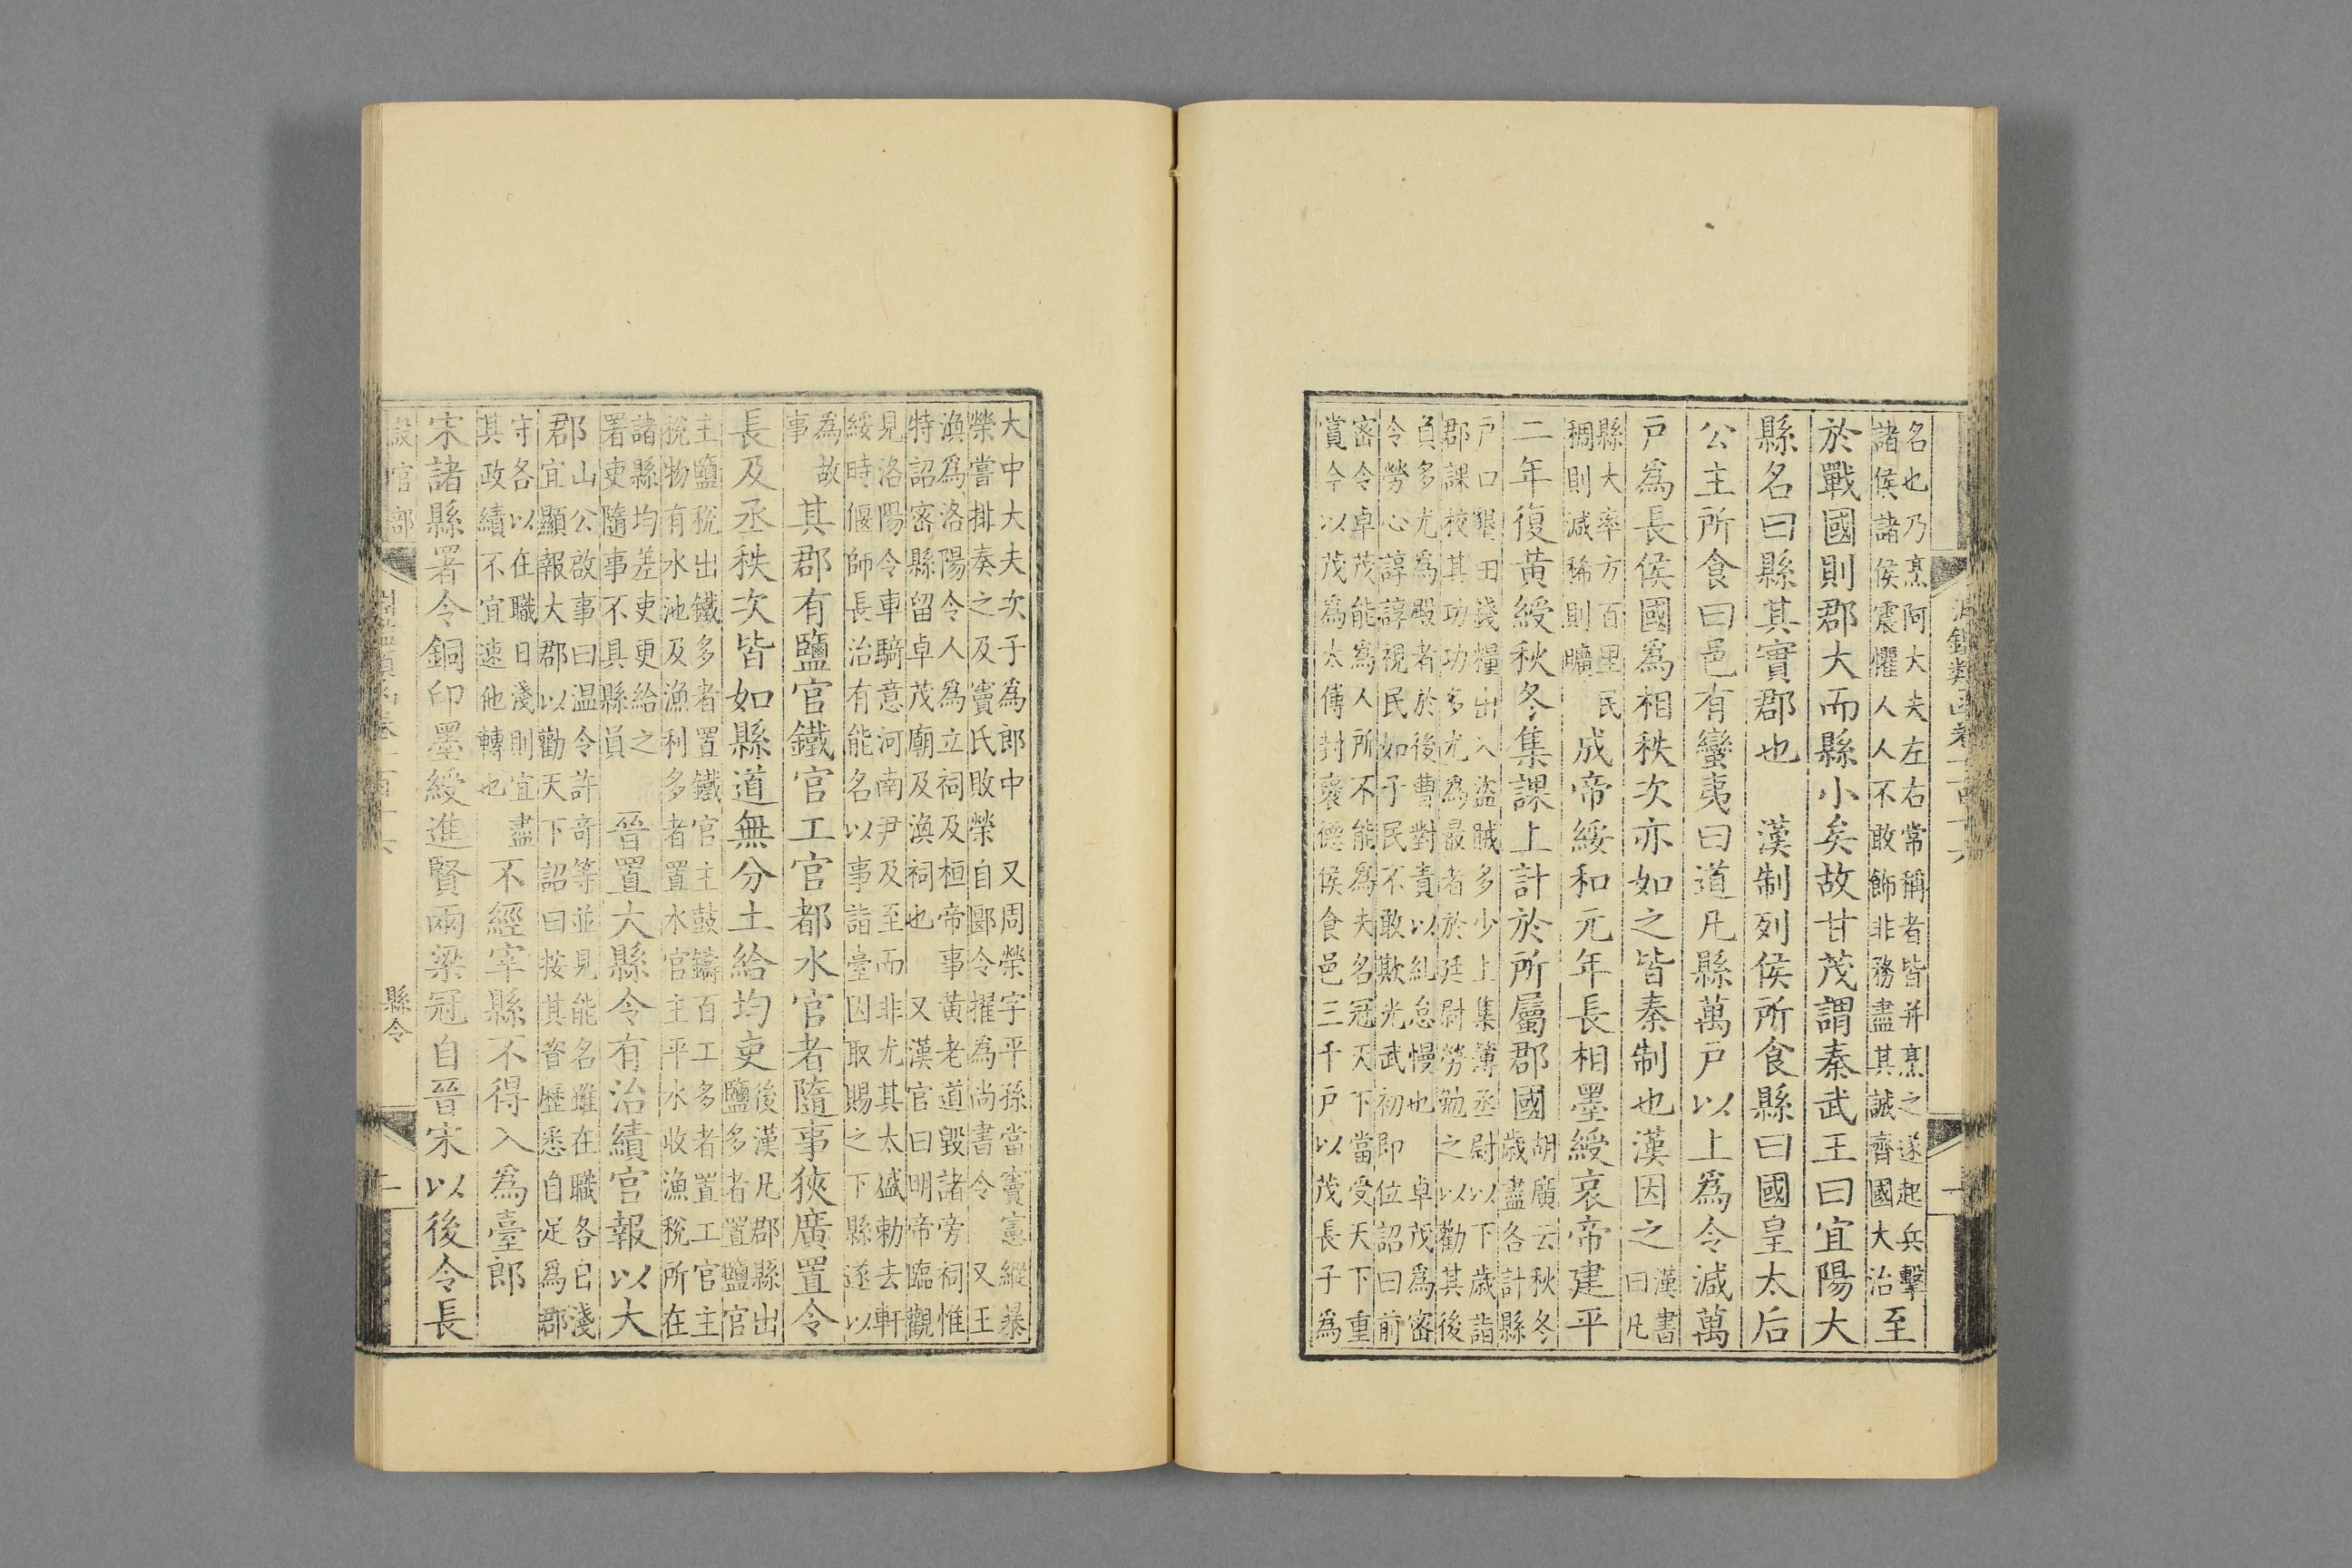 名也乃烹阿大夫左右常稱者皆并烹之遂起兵擊
諸侯諸侯震懼人人不敢飾非務盡其誠齊國大治 至
於戰國則郡大而縣小矣故甘茂謂秦武王曰宜陽大
縣名曰縣其實郡也 漢制列侯所食縣曰國皇太后
公主所食曰邑有蠻夷曰道凡縣萬戶以上為令減萬
戶為長侯國為相秩次亦如之皆秦制也漢因之 漢書
曰凡
縣大率方百里民
稠則減稀則曠 成帝綏和元年長相墨綬哀帝建平
二年復黃綬秋冬集課上計於所屬郡國 胡廣云秋冬
歲盡各計縣
戶口墾田錢糧出入盜賊多少上集簿丞尉以下歲詣
郡課校其功功多尤為最者於廷尉勞勉之以勸其後
負多尤為殿者於後曹對責以糺怠慢也 卓茂為密
令勞心諄諄視民如子民不敢欺光武初即位詔曰前
密令卓茂能為人所不能為夫名冠天下當受天下重
賞今以茂為太傅封襃德侯食邑三千戶以茂長子為
淵鑑類函卷一百十六
一
大中大夫次子為郎中 又周榮字平孫當竇憲縱暴
榮嘗排奏之及竇氏敗榮自郾令擢為尚書令 又王
渙為洛陽令人為立祠及桓帝事黃老道毀諸旁祠惟
特詔密縣留卓茂廟及渙祠也 又漢官曰明帝臨觀
見洛陽令車騎意河南尹及至而非尤其太盛勅去軒
綏時偃師長治有能名以事詣臺因取賜之下縣遂以
為故
事 其郡有鹽官鐵官工官都水官者隨事狹廣置令
長及丞秩次皆如縣道無分土給均吏 後漢凡郡縣出
鹽多者置鹽官
主鹽稅出鐵多者置鐵官主鼓鑄百工多者置工官主
稅物有水池及漁利多者置水官主平水收漁稅所在
諸縣均差吏更給之
署吏隨事不具縣員 晉置大縣令有治績官報以大
郡 山公啟事曰温令許奇等並見能名雖在職各自淺
宜顯報大郡以勸天下詔曰按其資歷悉自足為郡
守各以在職日淺則宜盡
其政績不宜速他轉也 不經宰縣不得入為臺郎
宋諸縣署令銅印墨綬進賢兩梁冠自晉宋以後令長
設官部
縣令